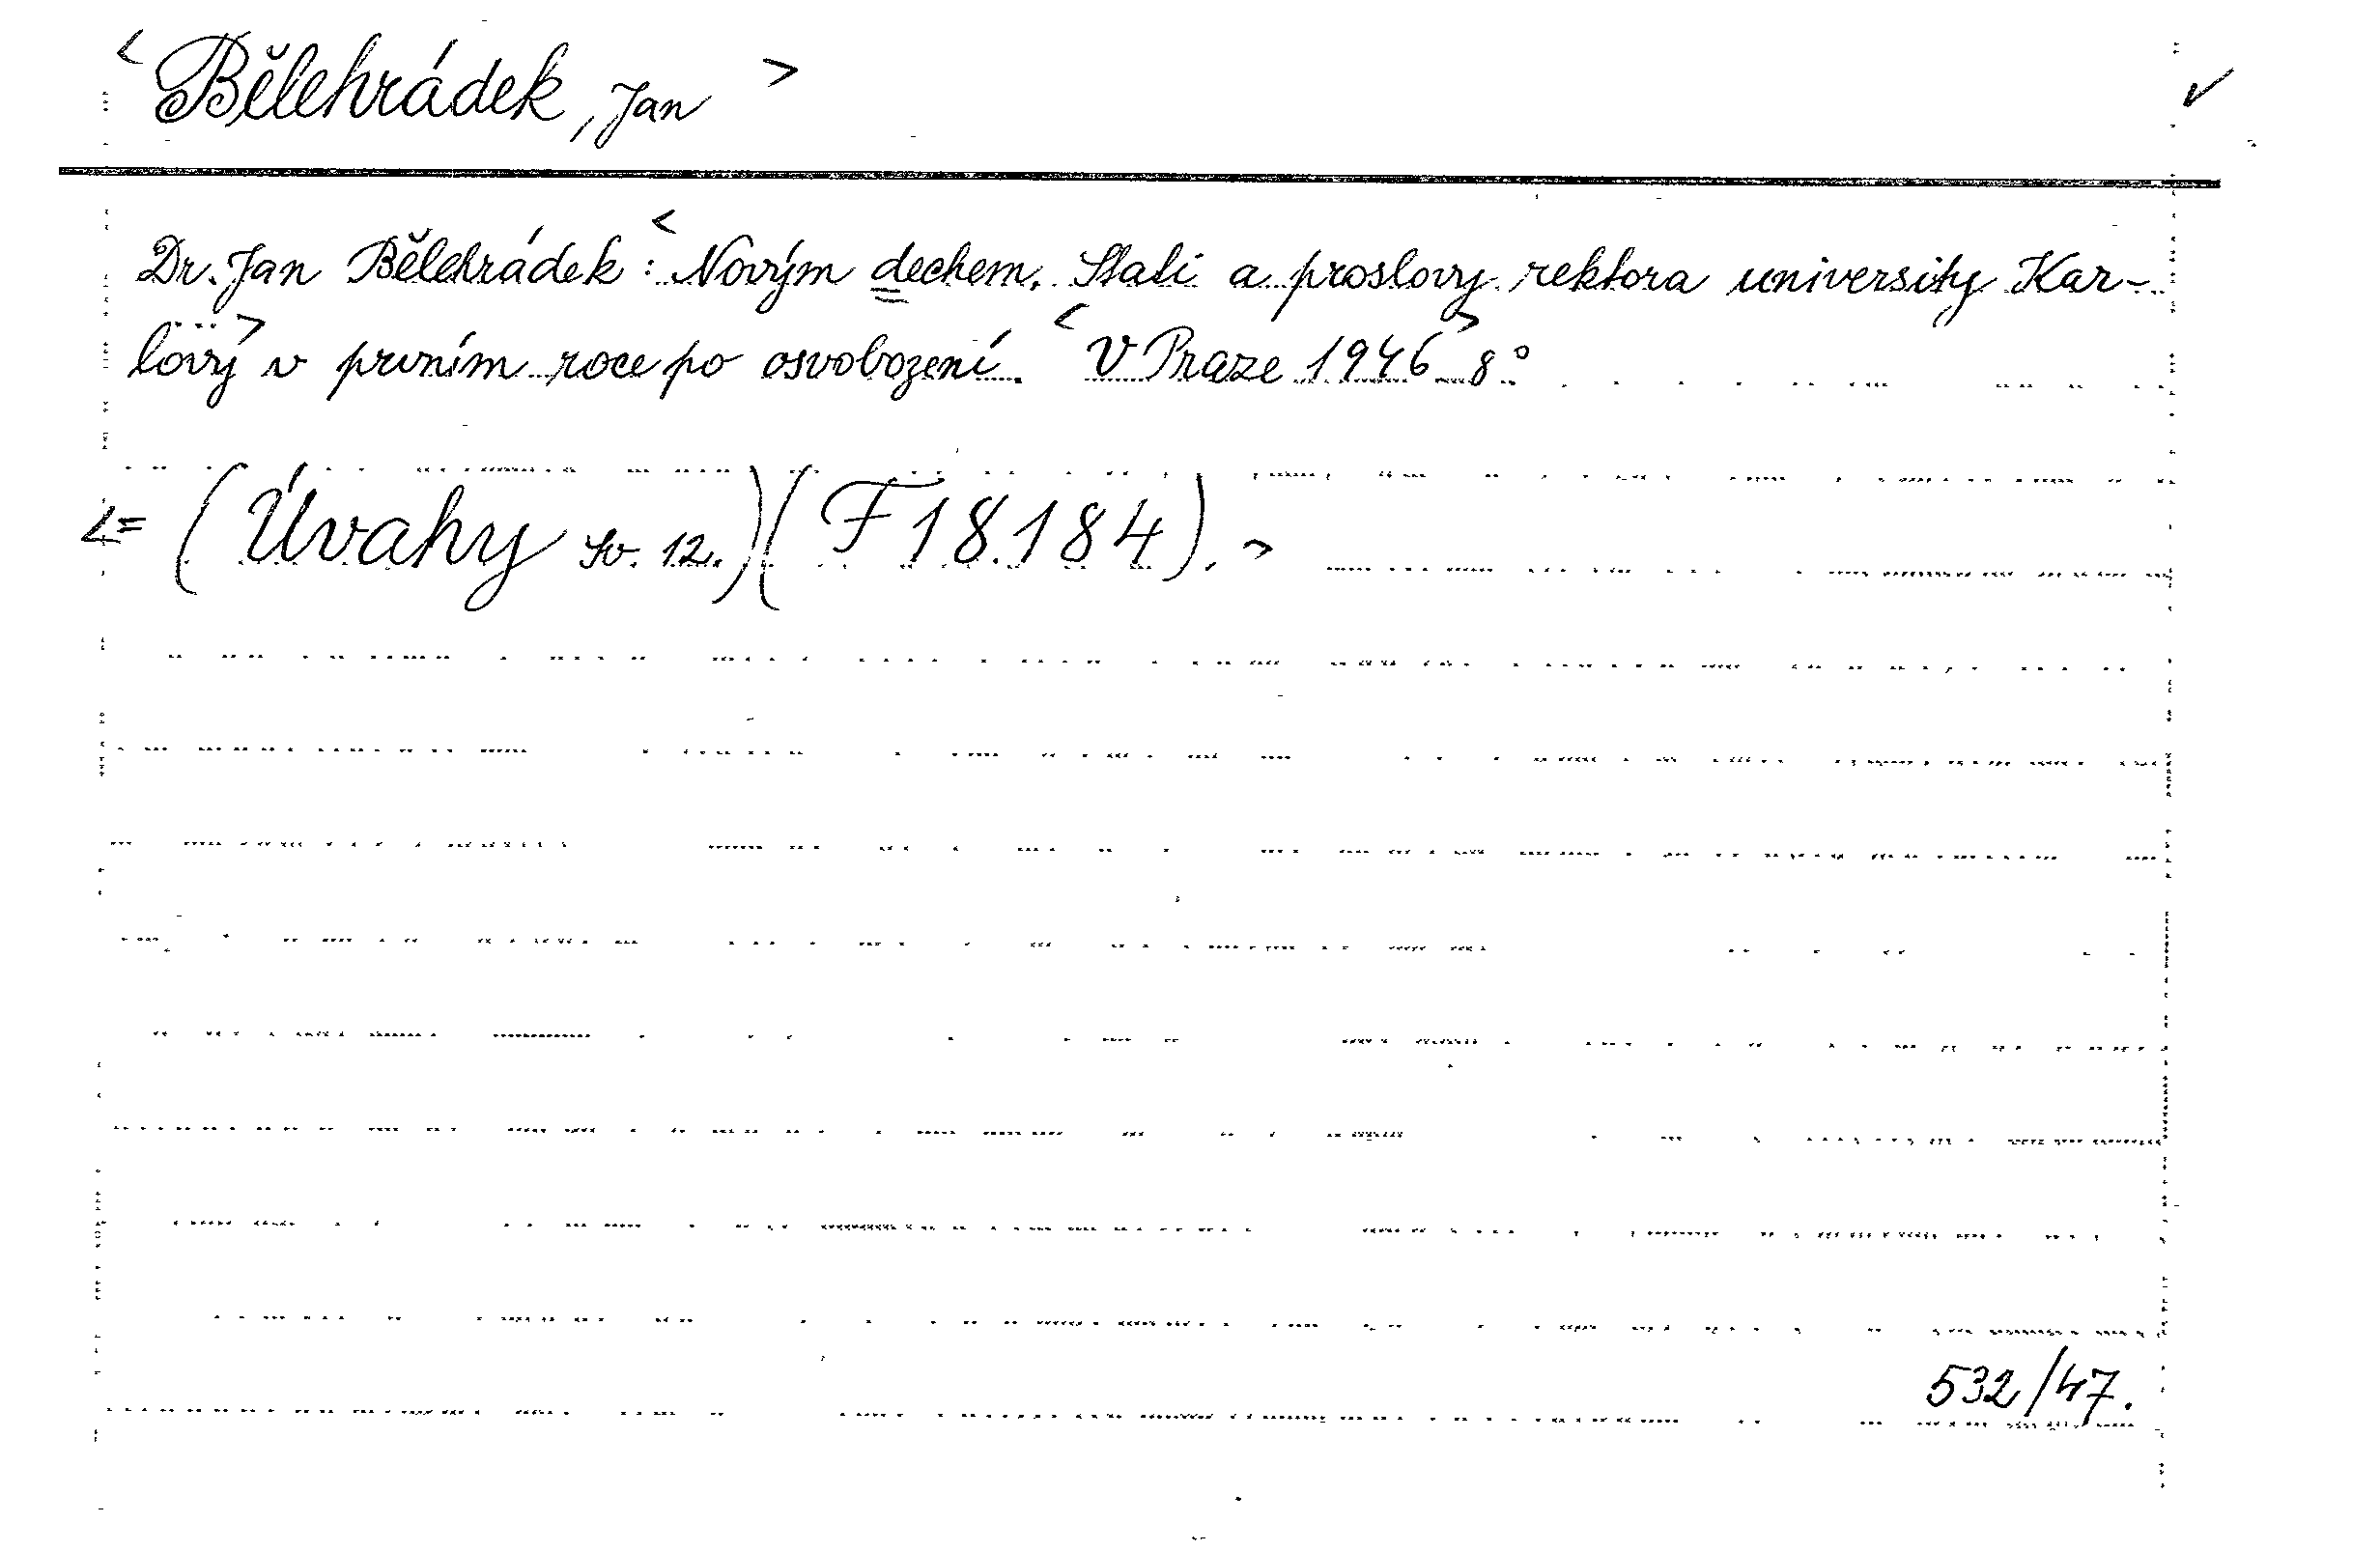 < Bělehrádek, Jan > ✓
Dr. Jan Bělehrádek: < Novým dechem. Stati a proslovy rektora university Kar-
lovy > v prvním roce po osvobození. < V Praze 1946 > 8°
<= (Úvahy sv. 12.) (F 18.184). >
532/47.